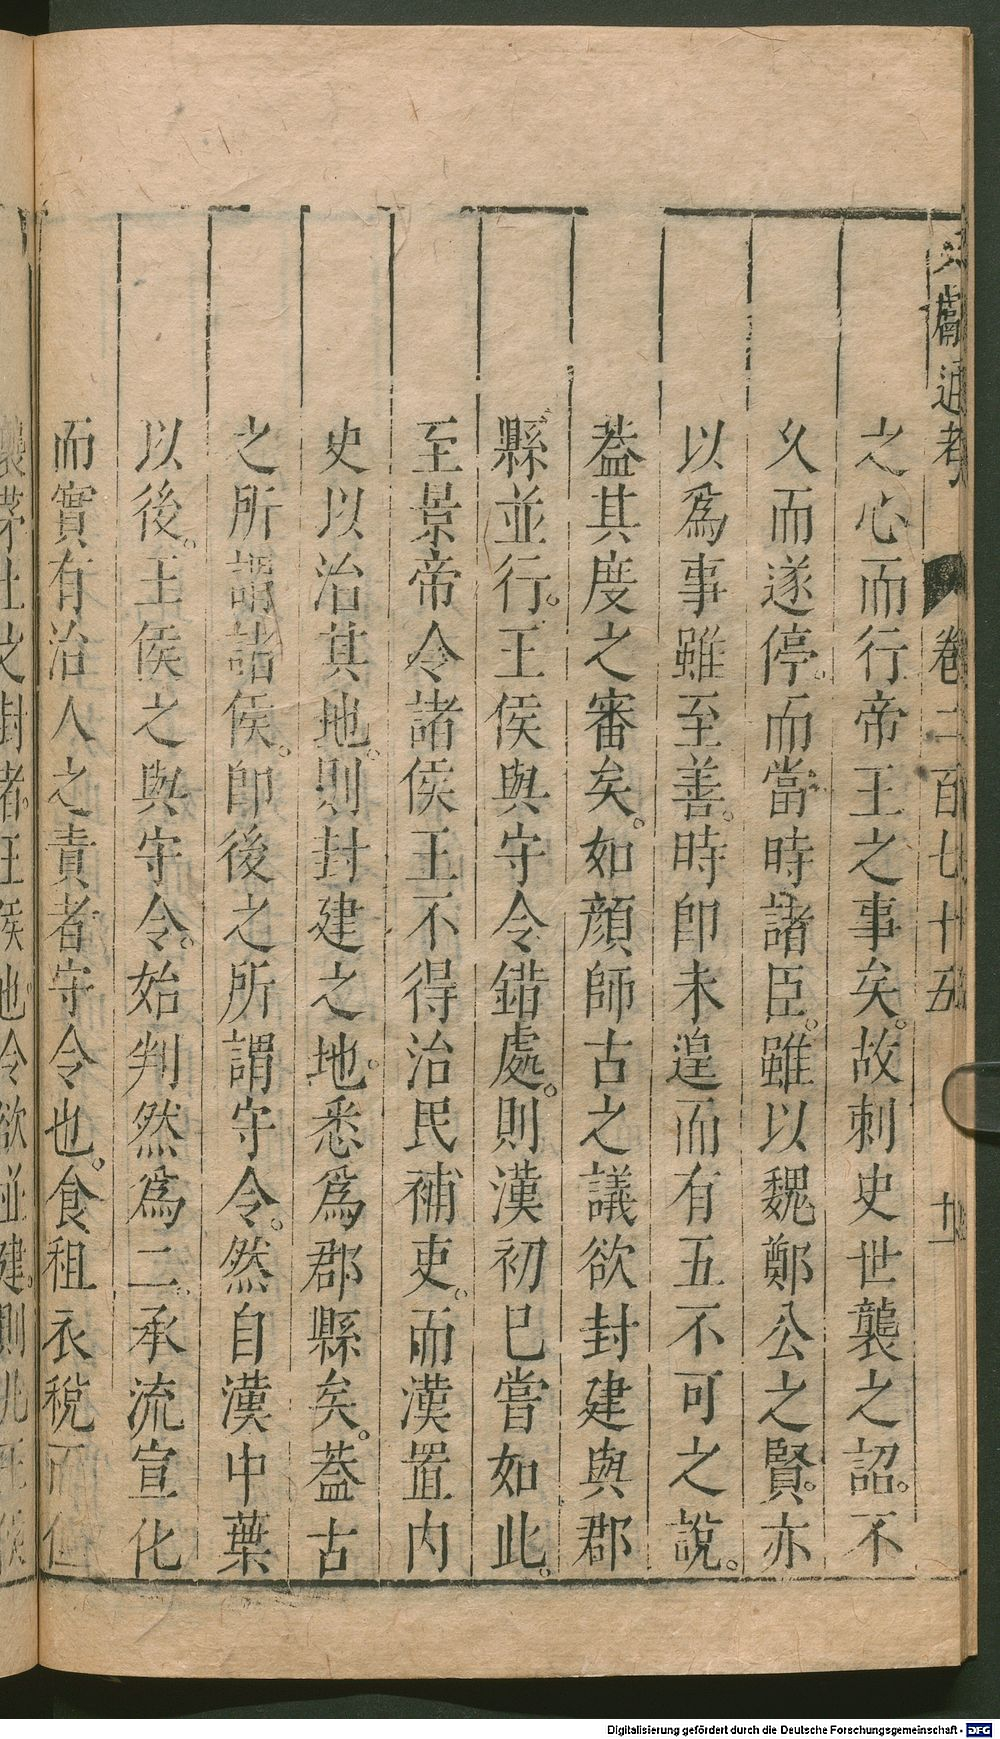 文獻通考 卷二百七十五 十二
之心而行帝王之事矣。故刺史世襲之詔。不
乆而遂停。而當時諸臣。雖以魏鄭公之賢。亦
以爲事雖至善。時卽未遑而有五不可之說。
葢其度之審矣。如顏師古之議欲封建與郡
縣並行。王侯與守令錯處。則漢初已嘗如此。
至景帝令諸侯王不得治民補吏。而漢置內
史以治其地。則封建之地。悉爲郡縣矣。葢古
之所謂諸侯。卽後之所謂守令。然自漢中葉
以後。王侯之與守令。始判然爲二。承流宣化
而實有治人之責者守令也。食租衣稅而但
襲茅土之封者。王侯也。今欲並建。則凡
Digitalisierung gefördert durch die Deutsche Forschungsgemeinschaft - DFG